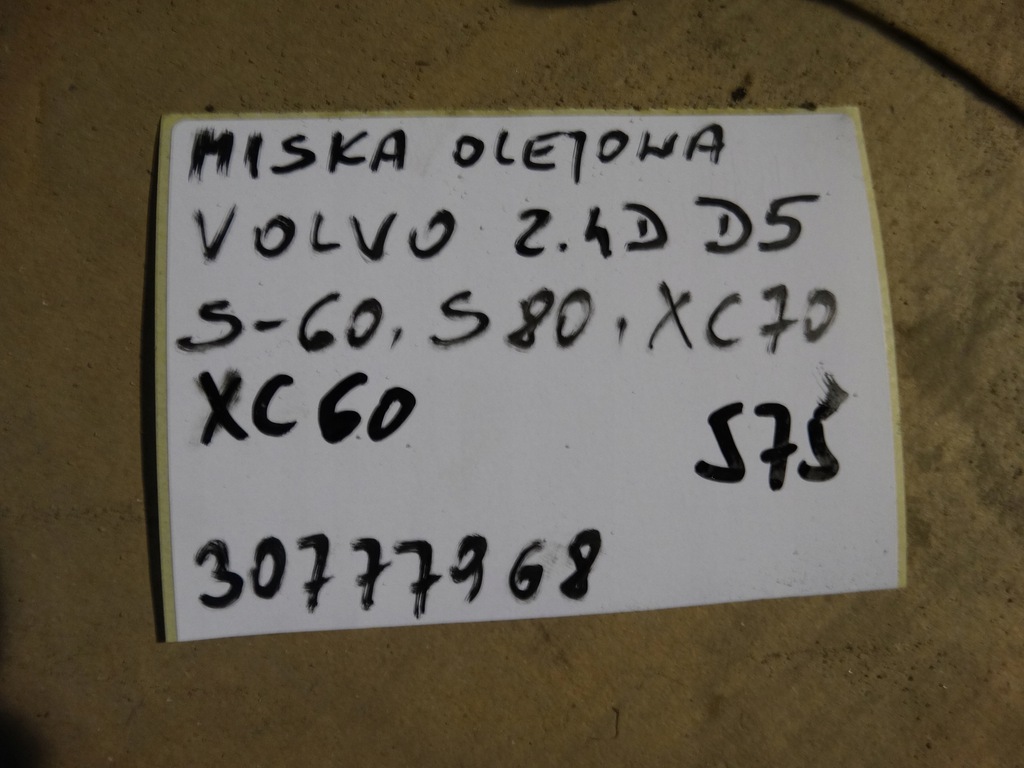 MISKA OLEJOWA
VOLVO 2.4D D5
S-60, S80, XC70
XC60
575
30777968